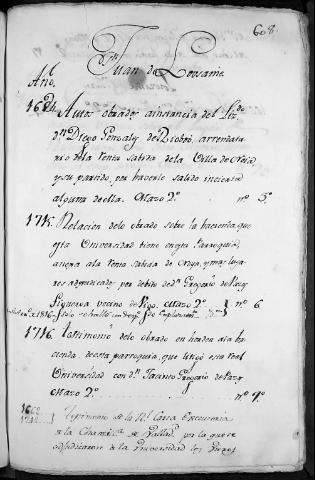 608.
Sn Juan de Lousame
Año.
1684. Autos obrados a instancia del Lizdo.
dn. Diego Gonzalez de Riobóo, arrendata
rio de la renta sabida de la Villa de Noia
y su partido, por haverle salido incierta
alguna de ella. Mazo 2º nº 5º
1715. Relacion de lo obrado sobre la hacienda, que
esta Universidad tiene en esta Parroquia,
anexa a la renta sabida de Noya, y mas luga
res adjudicados por debito de dn. Gregorio de
Figueroa vecino de Vigo. Mazo 2º nº 6.
1716. Testimonio de lo obrado en horden a la ha
cienda de esta parroquia, que litigó esta Real
Universidad con dn. Jacinto Gregorio de
Mazo 2º nº 7º
Testimonio de la Rl. Carta Executoria
de la Chancilla. de Vallad. por la que se
adjudicaron a la Universidad los